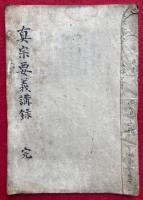 真宗要義講録 完